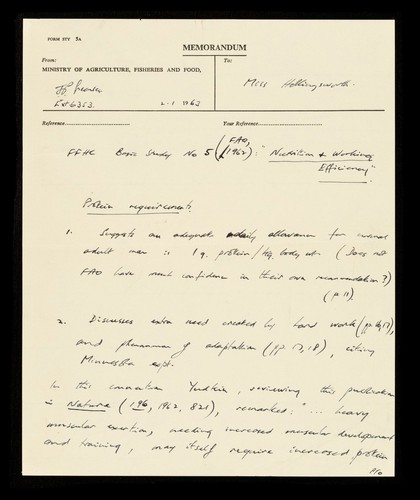 FORM STY 5A
MEMORANDUM
From:
To:
MINISTRY OF AGRICULTURE, FISHERIES AND FOOD,
Miss Hollingsworth.
Ext 6353
2-1 1963
Reference
Your Reference
FFHC Basic Study No 5 (FAO, 1962): "Nutrition & Working
Efficiency"
Protein requirements.
1. Suggests an adequate daily allowance for normal
adult man is 1 g. protein/kg. body wt. (Does not
FAO have much confidence in their own recommendation?)
(p 11).
2. Discusses extra need created by hard work (pp 16, 17),
and phenomenon of adaptation (pp 17, 18), citing
Minnesota expt.
In this connection Yudkin, reviewing this publication
in Nature (196, 1962, 821), remarked: "... heavy
muscular exertion, needing increased muscular development
and training, may itself require increased protein
PTO